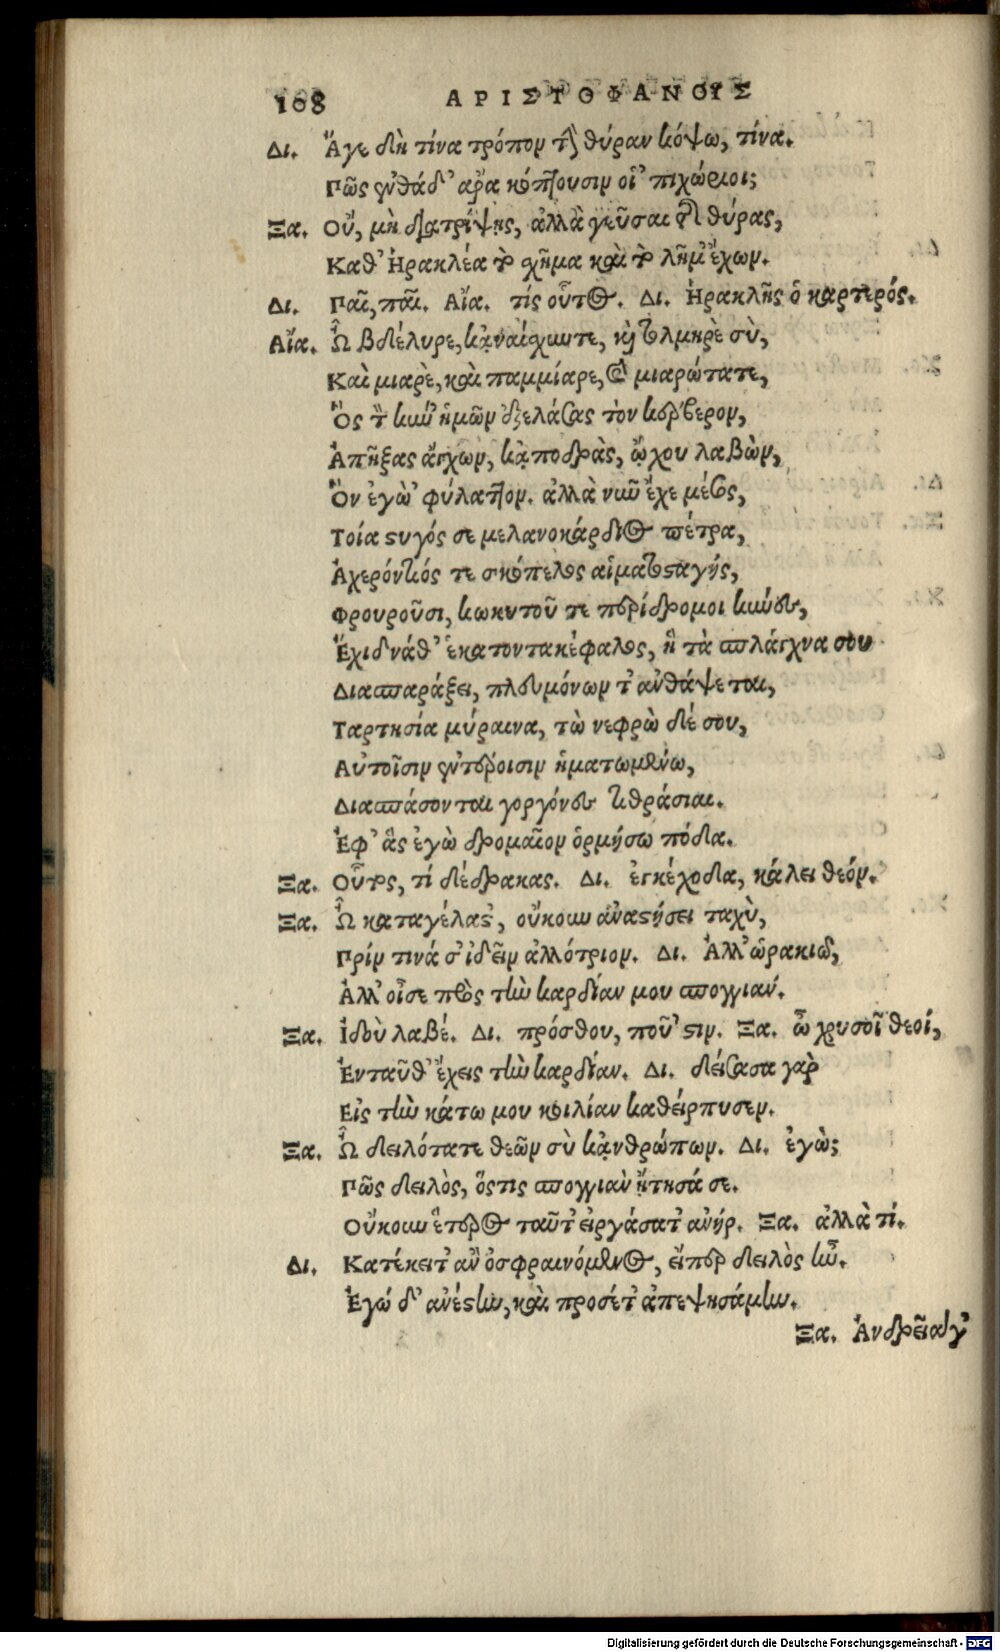 108 ΑΡΙΣΤΟΦΑΝΟΥΣ
Δι. Ἄγε δὴ τίνα τρόπον τὴν θύραν κόψω, τίνα.
Πῶς ἐνθάδ' ἄρα κόπτουσιν οἱ 'πιχώριοι;
Ξα. Οὔ, μὴ διατρίψῃς, ἀλλὰ γεῦσαι τῆς θύρας,
Καθ' Ἡρακλέα τὸ χῆμα καὶ τὸ λῆμ' ἔχων.
Δι. Παῖ, παῖ. Αἴα. τίς οὗτος. Δι. Ἡρακλῆς ὁ καρτερός.
Αἴα. Ὦ βδέλυρε, κἀναίσχυντε, καὶ τολμηρὲ σὺ,
Καὶ μιαρὲ, καὶ παμμίαρε, καὶ μιαρώτατε,
Ὃς τὸν κύν' ἡμῶν ἐξελάσας τὸν κέρβερον,
Ἀπῇξας ἄγχων, κᾀποδρὰς, ᾤχου λαβὼν,
Ὃν ἐγὼ 'φύλαττον. ἀλλὰ νῦν ἔχε μέσος,
Τοία στυγός σε μελανοκάρδιος πέτρα,
Ἀχερόντιός τε σκόπελος αἱματοσταγής,
Φρουροῦσι, κωκυτοῦ τε περίδρομοι κύνες,
Ἔχιδνάθ' ἑκατοντακέφαλος, ἣ τὰ σπλάγχνα σου
Διασπαράξει, πλευμόνων τ' ἀνθάψεται,
Ταρτησία μύραινα, τὼ νεφρὼ δέ σου,
Αὐτοῖσιν ἐντέροισιν ἡματωμένω,
Διασπάσονται γοργόνες τιθράσιαι.
Ἐφ' ἃς ἐγὼ δρομαῖον ὁρμήσω πόδα.
Ξα. Οὗτος, τί δέδρακας. Δι. ἐγκέχοδα, κάλει θεόν.
Ξα. Ὦ καταγέλαστ', οὔκουν ἀναστήσει ταχὺ,
Πρίν τινά σ' ἰδεῖν ἀλλότριον. Δι. Ἀλλ' ὡρακιῶ,
Ἀλλ' οἶσε πρὸς τὴν καρδίαν μου σπογγιάν.
Ξα. Ἰδοὺ λαβέ. Δι. πρόσθου, ποῦ 'στιν. Ξα. ὦ χρυσοῖ θεοί,
Ἐνταῦθ' ἔχεις τὴν καρδίαν. Δι. δείσασα γὰρ
Εἰς τὴν κάτω μου κοιλίαν καθείρπυσεν.
Ξα. Ὦ δειλότατε θεῶν σὺ κᾀνθρώπων. Δι. ἐγὼ;
Πῶς δειλὸς, ὅστις σπογγιὰν ᾔτησά σε.
Οὔκουν ἕτερος ταῦτ' εἰργάσατ' ἀνήρ. Ξα. ἀλλὰ τί.
Δι. Κατέκειτ' ἂν ὀσφραινόμενος, εἴπερ δειλὸς ἦν.
Ἐγώ δ' ἀνέστην, καὶ προσέτ' ἀπεψησάμην.
Ξα. Ἀνδρεῖά γ'
Digitalisierung gefördert durch die Deutsche Forschungsgemeinschaft - DFG